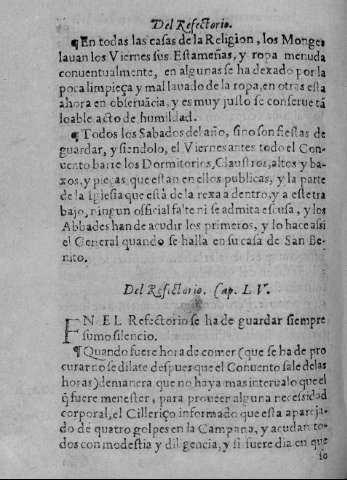 Del Refectorio.
¶En todas las casas de la Religion, los Monges
lauan los Viernes sus Estameñas, y ropa menuda
conuentualmente, en algunas se ha dexado por la
poca limpieça y mal lauado de la ropa, en otras esta
ahora en obseruãcia, y es muy justo se conserue tã
loable acto de humildad.
¶Todos los Sabados del año, sino son fiestas de
guardar, y siendolo, el Viernes antes todo el Con
uento barre los Dormitorios, Claustros, altos y ba-
xos, y pieças que estan en ellos publicas, y la parte
de la Iglesia que està de la rexa à dentro, y a este tra
bajo, ningun official falte ni se admita escusa, y los
Abbades han de acudir los primeros, y lo hace assi
el General quando se halla en su casa de San Be-
nito.
Del Refictorio. Cap. LV.
EN EL Refectorio se ha de guardar siempre
sumo silencio.
¶Quando fuere hora de comer (que se ha de pro
curar no se dilate despues que el Conuento sale de las
horas) de manera que no haya mas interualo que el
q̃ fuere menester, para proueer alguna necessidad
corporal, el Cilleriço informado que esta apareja-
do de quatro golpes en la Campana, y acudan to-
dos con modestia y diligencia, y si fuere dia en que